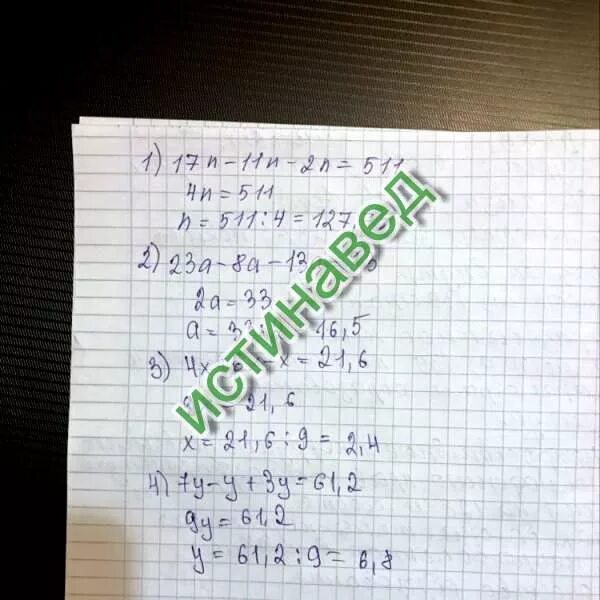 1) 17n - 11n - 2n = 511
4n = 511
n = 511 : 4 = 127,
2) 23a - 8a - 13
2a = 33
a = 33 16,5
3) 4x - x = 21,6
21,6
x = 21,6 : 9 = 2,4
4) 7y - y + 3y = 61,2
9y = 61,2
y = 61,2 : 9 = 6,8
истинавед